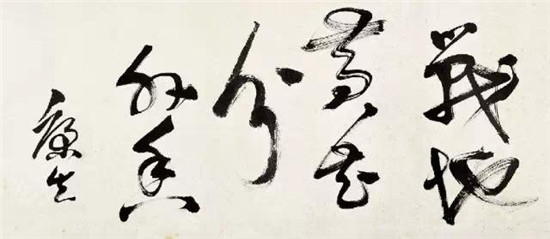 戰地
黃花
分
外香
康生